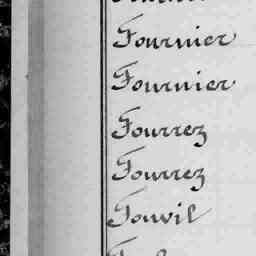 Fournier
Fournier
Fourrez
Fourrez
Fouvil